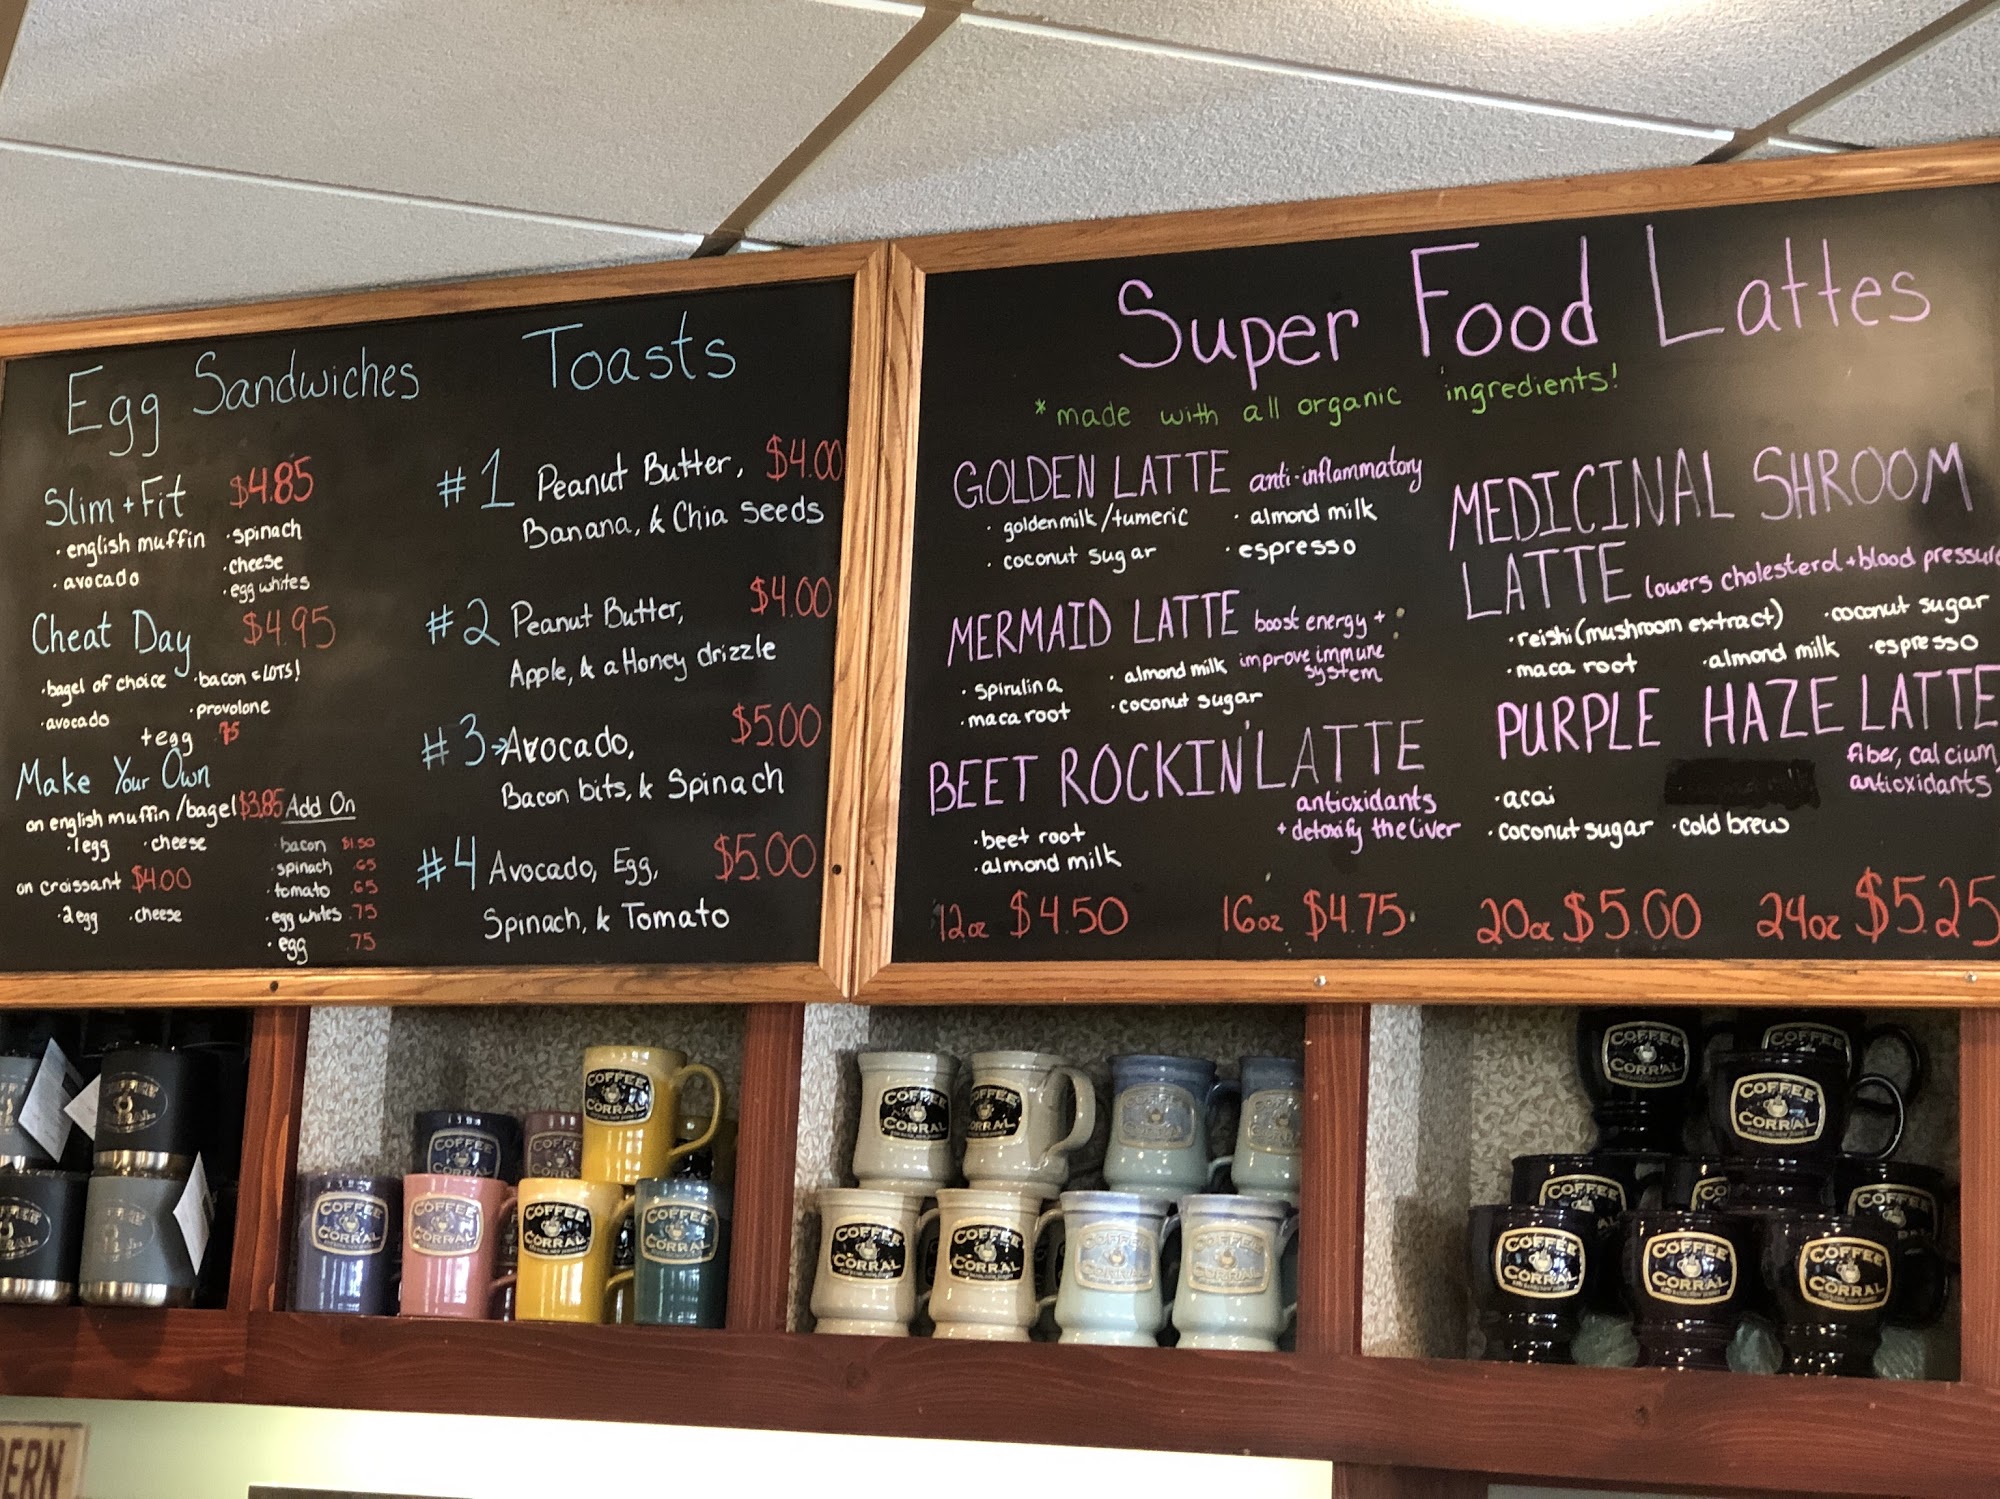 Egg Sandwiches
Slim + Fit $4.85
· english muffin · spinach
· avocado · cheese
· egg whites
Cheat Day $4.95
· bagel of choice · bacon = LOTS!
· avocado · provolone
+egg .75
Make Your Own
on english muffin/bagel $3.85
· 1egg · cheese
on croissant $4.00
· 2egg · cheese
Add On
· bacon $1.50
· spinach .65
· tomato .65
· egg whites .75
· egg .75
Toasts
#1 Peanut Butter, $4.00
Banana, & Chia seeds
#2 Peanut Butter, $4.00
Apple, & a Honey drizzle
#3 Avocado, $5.00
Bacon bits, & Spinach
#4 Avocado, Egg, $5.00
Spinach, & Tomato
Super Food Lattes
*made with all organic ingredients!
GOLDEN LATTE anti-inflammatory
· goldenmilk/tumeric · almond milk
· coconut sugar · espresso
MERMAID LATTE boost energy +
improve immune
system
· spirulina · almond milk
· maca root · coconut sugar
BEET ROCKIN' LATTE
antioxidants
+ detoxify the liver
· beet root
· almond milk
MEDICINAL SHROOM
LATTE lowers cholesterol + blood pressure
· reishi (mushroom extract) · coconut sugar
· maca root · almond milk · espresso
PURPLE HAZE LATTE
fiber, calcium,
antioxidants
· acai
· coconut sugar · cold brew
12oz $4.50 16oz $4.75 20oz $5.00 24oz $5.25
COFFEE
CORRAL
COFFEE
CORRAL
COFFEE
CORRAL
COFFEE
CORRAL
COFFEE
CORRAL
COFFEE
CORRAL
COFFEE
CORRAL
COFFEE
CORRAL
COFFEE
CORRAL
COFFEE
CORRAL
COFFEE
CORRAL
COFFEE
CORRAL
COFFEE
CORRAL
COFFEE
CORRAL
COFFEE
CORRAL
COFFEE
CORRAL
COFFEE
CORRAL
COFFEE
CORRAL